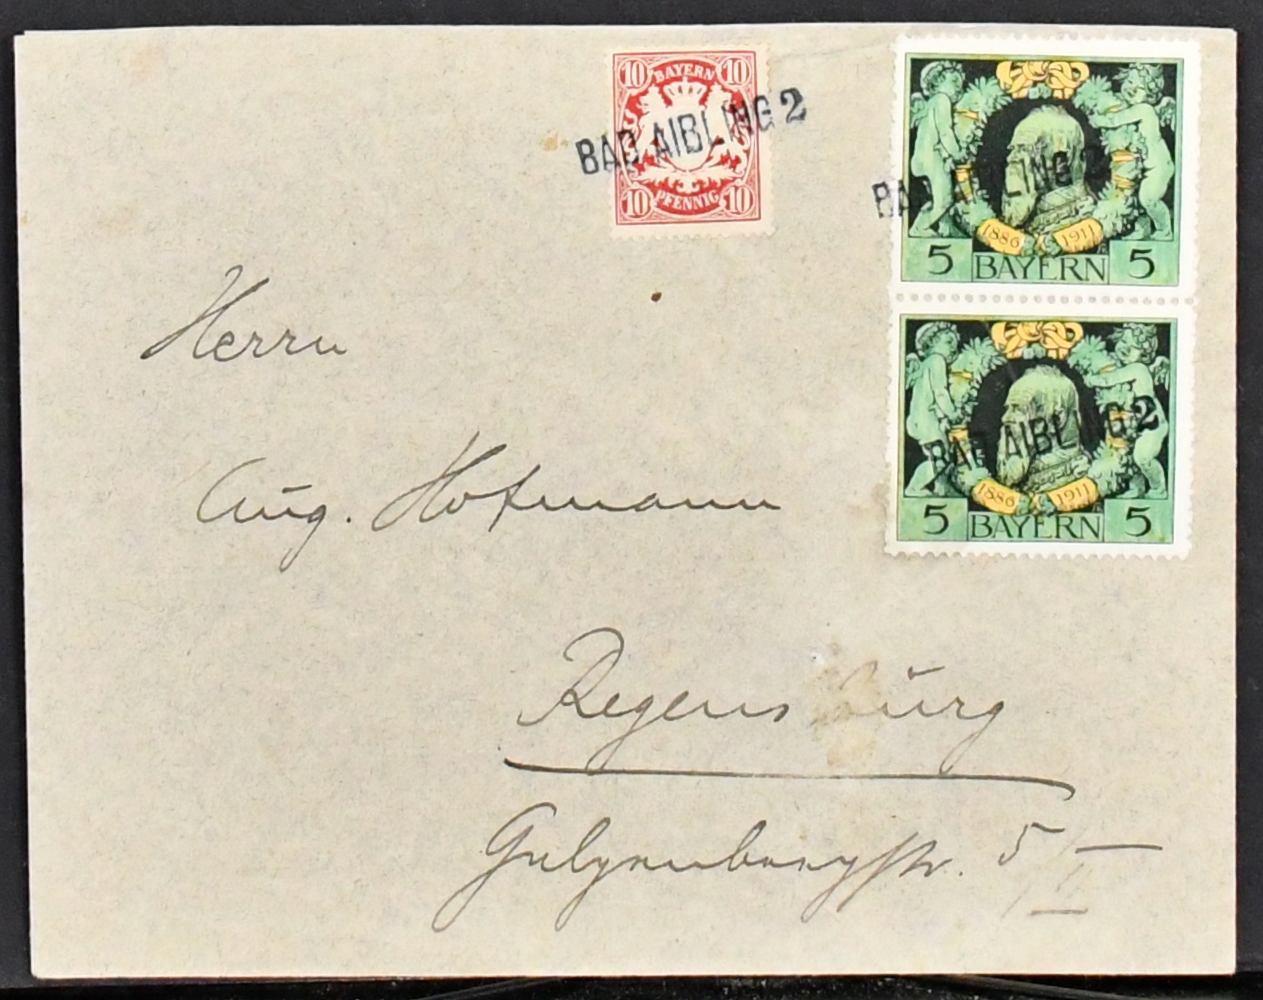 10 BAYERN 10
10 PFENNIG 10
BAD AIBLING 2
BAD AIBLING 2
1886 1911
5 BAYERN 5
BAD AIBLING 2
1886 1911
5 BAYERN 5
Herrn
Aug. Hofmann
Regensburg
5